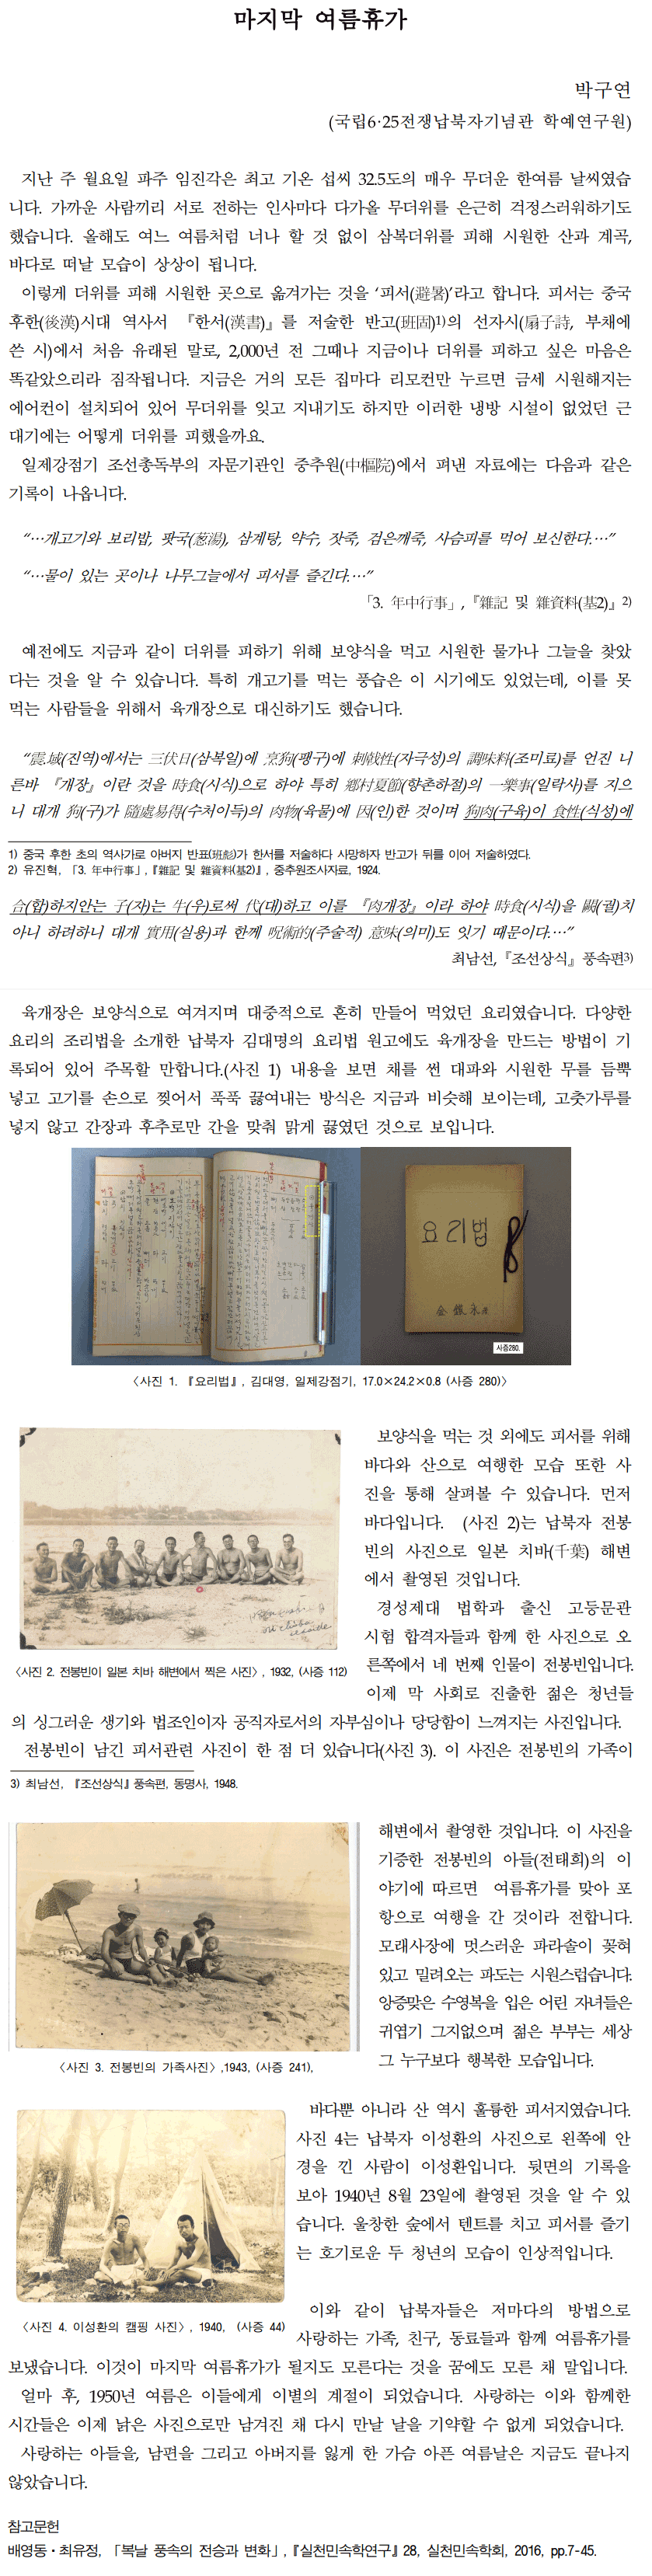 마지막 여름휴가
박구연
(국립6·25전쟁납북자기념관 학예연구원)
지난 주 월요일 파주 임진각은 최고 기온 섭씨 32.5도의 매우 무더운 한여름 날씨였습
니다. 가까운 사람끼리 서로 전하는 인사마다 다가올 무더위를 은근히 걱정스러워하기도
했습니다. 올해도 여느 여름처럼 너나 할 것 없이 삼복더위를 피해 시원한 산과 계곡,
바다로 떠날 모습이 상상이 됩니다.
이렇게 더위를 피해 시원한 곳으로 옮겨가는 것을 ‘피서(避暑)’라고 합니다. 피서는 중국
후한(後漢)시대 역사서 『한서(漢書)』를 저술한 반고(班固)1)의 선자시(扇子詩, 부채에
쓴 시)에서 처음 유래된 말로, 2,000년 전 그때나 지금이나 더위를 피하고 싶은 마음은
똑같았으리라 짐작됩니다. 지금은 거의 모든 집마다 리모컨만 누르면 금세 시원해지는
에어컨이 설치되어 있어 무더위를 잊고 지내기도 하지만 이러한 냉방 시설이 없었던 근
대기에는 어떻게 더위를 피했을까요.
일제강점기 조선총독부의 자문기관인 중추원(中樞院)에서 펴낸 자료에는 다음과 같은
기록이 나옵니다.
“…개고기와 보리밥, 팟국(葱湯), 삼계탕, 약수, 잣죽, 검은깨죽, 사슴피를 먹어 보신한다.…”
“…물이 있는 곳이나 나무그늘에서 피서를 즐긴다.…”
「3. 年中行事」,『雜記 및 雜資料(基2)』2)
예전에도 지금과 같이 더위를 피하기 위해 보양식을 먹고 시원한 물가나 그늘을 찾았
다는 것을 알 수 있습니다. 특히 개고기를 먹는 풍습은 이 시기에도 있었는데, 이를 못
먹는 사람들을 위해서 육개장으로 대신하기도 했습니다.
“震域(진역)에서는 三伏日(삼복일)에 烹狗(팽구)에 刺戟性(자극성)의 調味料(조미료)를 언진 니
른바 『개장』이란 것을 時食(시식)으로 하야 특히 鄕村夏節(향촌하절)의 一樂事(일락사)를 지으
니 대개 狗(구)가 隨處易得(수처이득)의 肉物(육물)에 因(인)한 것이며 狗肉(구육)이 食性(식성)에
1) 중국 후한 초의 역사가로 아버지 반표(班彪)가 한서를 저술하다 사망하자 반고가 뒤를 이어 저술하였다.
2) 유진혁, 「3. 年中行事」,『雜記 및 雜資料(基2)』, 중추원조사자료, 1924.
合(합)하지안는 子(자)는 牛(우)로써 代(대)하고 이를 『肉개장』이라 하야 時食(시식)을 闕(궐)치
아니 하려하니 대개 實用(실용)과 한께 呪術的(주술적) 意味(의미)도 잇기 때문이다…”
최남선,『조선상식』풍속편3)
육개장은 보양식으로 여겨지며 대중적으로 흔히 만들어 먹었던 요리였습니다. 다양한
요리의 조리법을 소개한 납북자 김대명의 요리법 원고에도 육개장을 만드는 방법이 기
록되어 있어 주목할 만합니다.(사진 1) 내용을 보면 채를 썬 대파와 시원한 무를 듬뿍
넣고 고기를 손으로 찢어서 푹푹 끓여내는 방식은 지금과 비슷해 보이는데, 고춧가루를
넣지 않고 간장과 후추로만 간을 맞춰 맑게 끓였던 것으로 보입니다.
요리법
사증280.
〈사진 1. 『요리법』, 김대영, 일제강점기, 17.0×24.2×0.8 (사증 280)〉
보양식을 먹는 것 외에도 피서를 위해
바다와 산으로 여행한 모습 또한 사
진을 통해 살펴볼 수 있습니다. 먼저
바다입니다. (사진 2)는 납북자 전봉
빈의 사진으로 일본 치바(千葉) 해변
에서 촬영된 것입니다.
경성제대 법학과 출신 고등문관
시험 합격자들과 함께 한 사진으로 오
른쪽에서 네 번째 인물이 전봉빈입니다.
이제 막 사회로 진출한 젊은 청년들
〈사진 2. 전봉빈이 일본 치바 해변에서 찍은 사진〉, 1932, (사증 112)
의 싱그러운 생기와 법조인이자 공직자로서의 자부심이나 당당함이 느껴지는 사진입니다.
전봉빈이 남긴 피서관련 사진이 한 점 더 있습니다(사진 3). 이 사진은 전봉빈의 가족이
3) 최남선, 『조선상식』풍속편, 동명사, 1948.
해변에서 촬영한 것입니다. 이 사진을
기증한 전봉빈의 아들(전태희)의 이
야기에 따르면 여름휴가를 맞아 포
항으로 여행을 간 것이라 전합니다.
모래사장에 멋스러운 파라솔이 꽂혀
있고 밀려오는 파도는 시원스럽습니다.
앙증맞은 수영복을 입은 어린 자녀들은
귀엽기 그지없으며 젊은 부부는 세상
그 누구보다 행복한 모습입니다.
〈사진 3. 전봉빈의 가족사진〉,1943, (사증 241),
바다뿐 아니라 산 역시 훌륭한 피서지였습니다.
사진 4는 납북자 이성환의 사진으로 왼쪽에 안
경을 낀 사람이 이성환입니다. 뒷면의 기록을
보아 1940년 8월 23일에 촬영된 것을 알 수 있
습니다. 울창한 숲에서 텐트를 치고 피서를 즐기
는 호기로운 두 청년의 모습이 인상적입니다.
〈사진 4. 이성환의 캠핑 사진〉, 1940, (사증 44)
이와 같이 납북자들은 저마다의 방법으로
사랑하는 가족, 친구, 동료들과 함께 여름휴가를
보냈습니다. 이것이 마지막 여름휴가가 될지도 모른다는 것을 꿈에도 모른 채 말입니다.
얼마 후, 1950년 여름은 이들에게 이별의 계절이 되었습니다. 사랑하는 이와 함께한
시간들은 이제 낡은 사진으로만 남겨진 채 다시 만날 날을 기약할 수 없게 되었습니다.
사랑하는 아들을, 남편을 그리고 아버지를 잃게 한 가슴 아픈 여름날은 지금도 끝나지
않았습니다.
참고문헌
배영동·최유정, 「복날 풍속의 전승과 변화」,『실천민속학연구』28, 실천민속학회, 2016, pp.7-45.